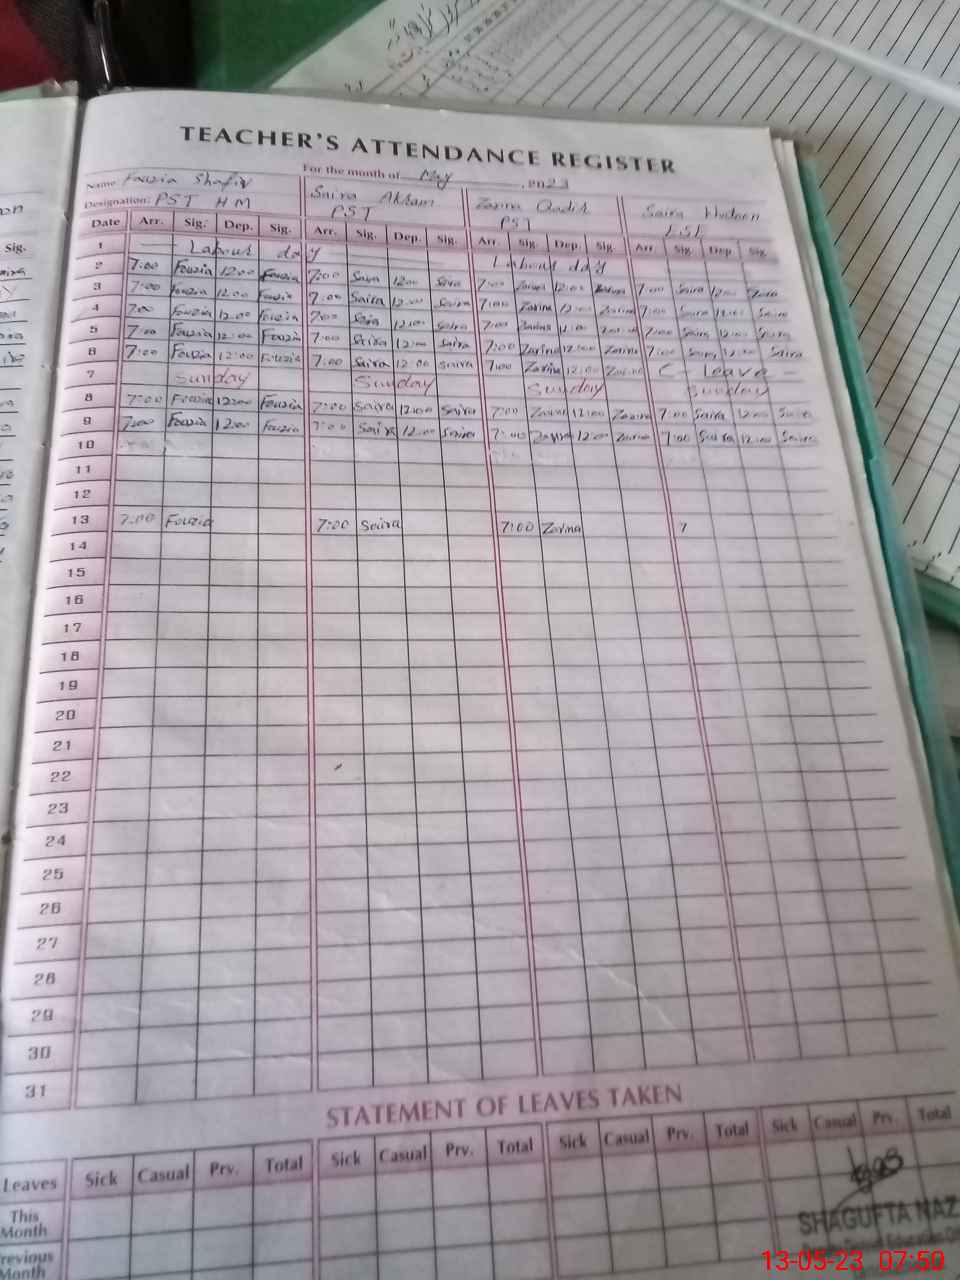 TEACHER'S ATTENDANCE REGISTER
For the month of May, 2023
Name Fouzia Shafiq Saira Akram Zarina Qadir Saira
Designation: PST HM PST PST
Date Arr. Sig. Dep. Sig. Arr. Sig. Dep. Sig. Arr. Sig. Dep. Sig. Arr. Sig. Dep. Sig.
1 Labour day Labour day
2 7:00 Fouzia 12:00 Fouzia 7:00 Saira 12:00 Saira 7:00 Zarina 12:00 Zarina 7:00 Saira 12:00
3 7:00 Fouzia 12:00 Fouzia 7:00 Saira 12:00 Saira 7:00 Zarina 12:00 Zarina 7:00 Saira 12:00 Saira
4 7:00 Fouzia 12:00 Fouzia 7:00 Saira 12:00 Saira 7:00 Zarina 12:00 Zarina 7:00 Saira 12:00 Saira
5 7:00 Fouzia 12:00 Fouzia 7:00 Saira 12:00 Saira 7:00 Zarina 12:00 Zarina 7:00 Saira 12:00 Saira
6 7:00 Fouzia 12:00 Fouzia 7:00 Saira 12:00 Saira 7:00 Zarina 12:00 Zarina C - Leave -
7 Sunday Sunday Sunday Sunday
8 7:00 Fouzia 12:00 Fouzia 7:00 Saira 12:00 Saira 7:00 Zarina 12:00 Zarina 7:00 Saira 12:00 Saira
9 7:00 Fouzia 12:00 Fouzia 7:00 Saira 12:00 Saira 7:00 Zarina 12:00 Zarina 7:00 Saira 12:00 Saira
10
11
12
13 7:00 Fouzia 7:00 Saira 7:00 Zarina 7
14
15
16
17
18
19
20
21
22
23
24
25
26
27
28
29
30
31
STATEMENT OF LEAVES TAKEN
Leaves Sick Casual Prv. Total Sick Casual Prv. Total Sick Casual Prv. Total Sick Casual Prv. Total
This Month
Previous Month
SHAGUFTA NAZ
13-05-23 07:50